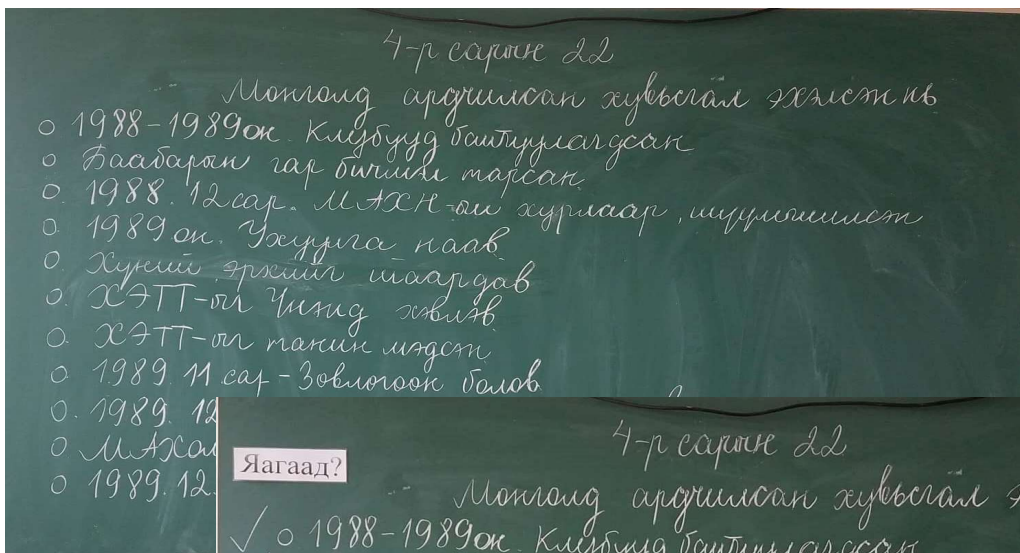 4-р сарын 22
Монголд ардчилсан хувьсгал эхэлсэн нь
o 1988-1989он. Клубууд байгуулагдсан
o Баабарын гар бичмэл тарсан.
o. 1988.12сар. МАХН-ын хурлаар, шүүмжилсэн
o. 1989он. Ухуулга наав
o. Хүний эрхийг шаардав
o. ХЭТТ-ыг Үнэнд хэвлэв
o. ХЭТТ-ыг танин мэдсэн
o. 1989.11 сар - Зөвлөгөөн болов
o. 1989.12
o МАХол
o 1989.12.
Яагаад?
4-р сарын 22
Монголд ардчилсан хувьсгал э
✓ o 1988-1989он. Клубууд байгуулагдсан